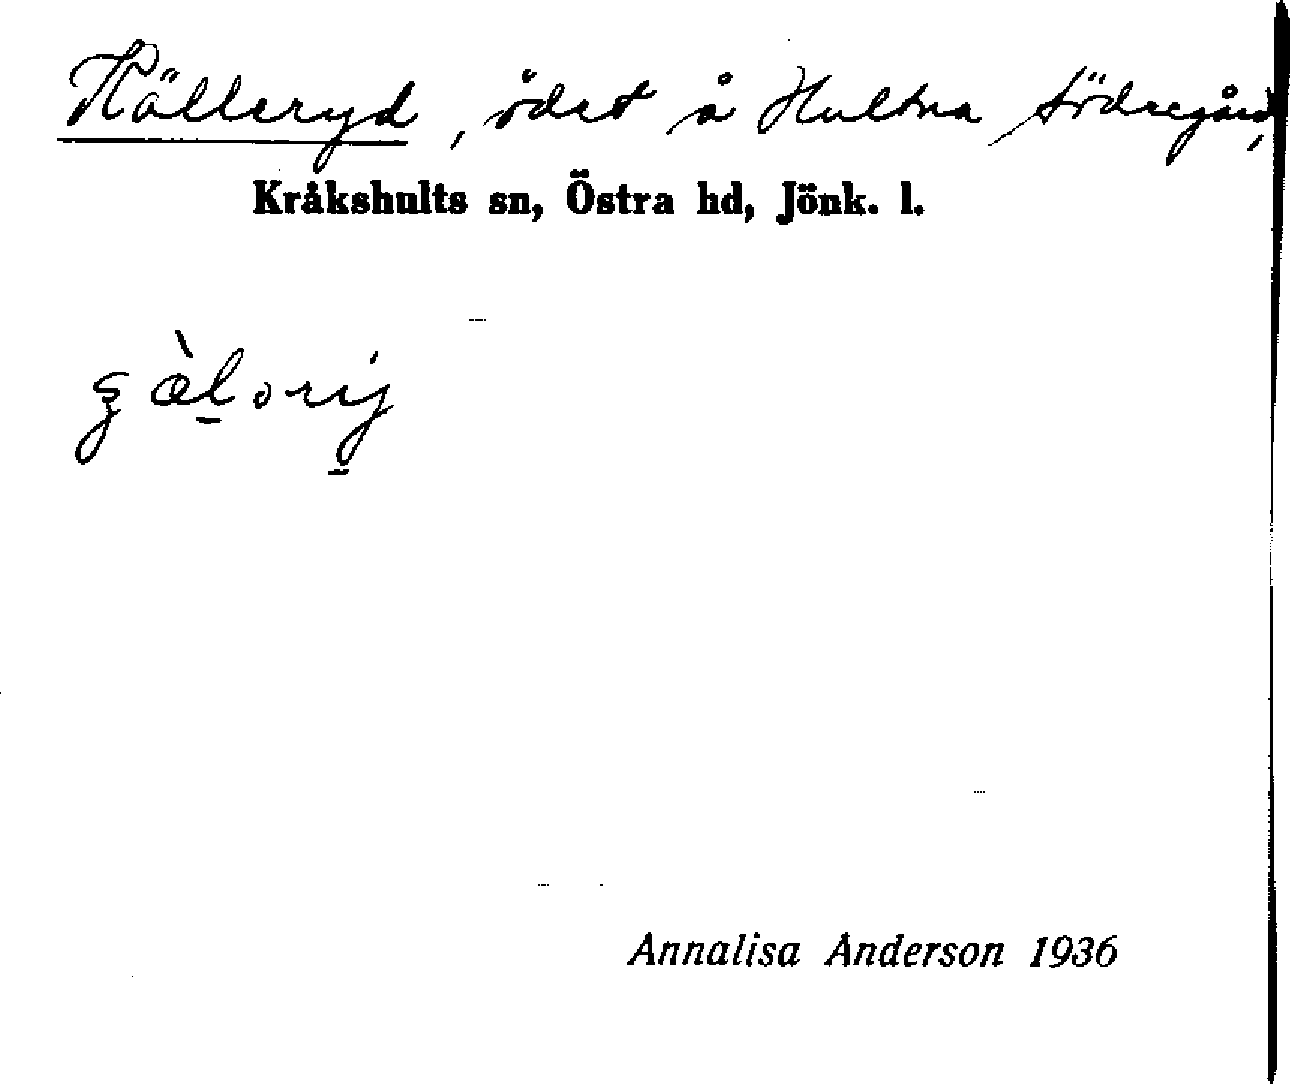 Källeryd, ödet å Hultna Södregård,
Kråkshults sn, Östra hd, Jönk. l.
Annalisa Anderson 1936